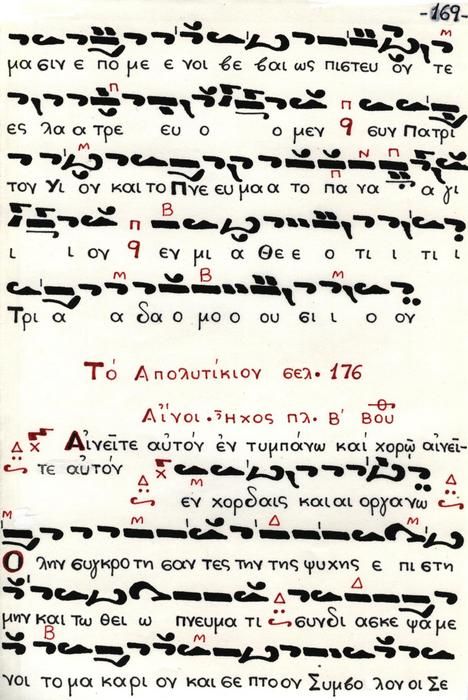 -169-
μα σιν ε πο με ε νοι βε βαι ως πιστευ ον τε
ες λα α τρε ευ ο ο μεν q συν Πατρι
τον Υι ον και το Πνε ευ μα α το πα να α γι
ι ι ον q εν μι α Θε ε ο τι ι τι ι
Τρι α α δα ο μο ο ου σι ι ο ον
Τό Απολυτίκιον σελ. 176
Αἶνοι. Ἦχος πλ. Β΄ Βου
Αἰνεῖτε αὐτόν ἐν τυμπάνω καί χορῷ αἰνεῖ-
τε αὐτόν
εν χορδαις και αι οργανω
Ο λην συγκρο τη σαν τες την της ψυχης ε πι στη
μην και τω θει ω πνευμα τι συνδι ασκε ψα με
νοι το μα καρι ον και σε πτο ον Συμβο λον οι Σε